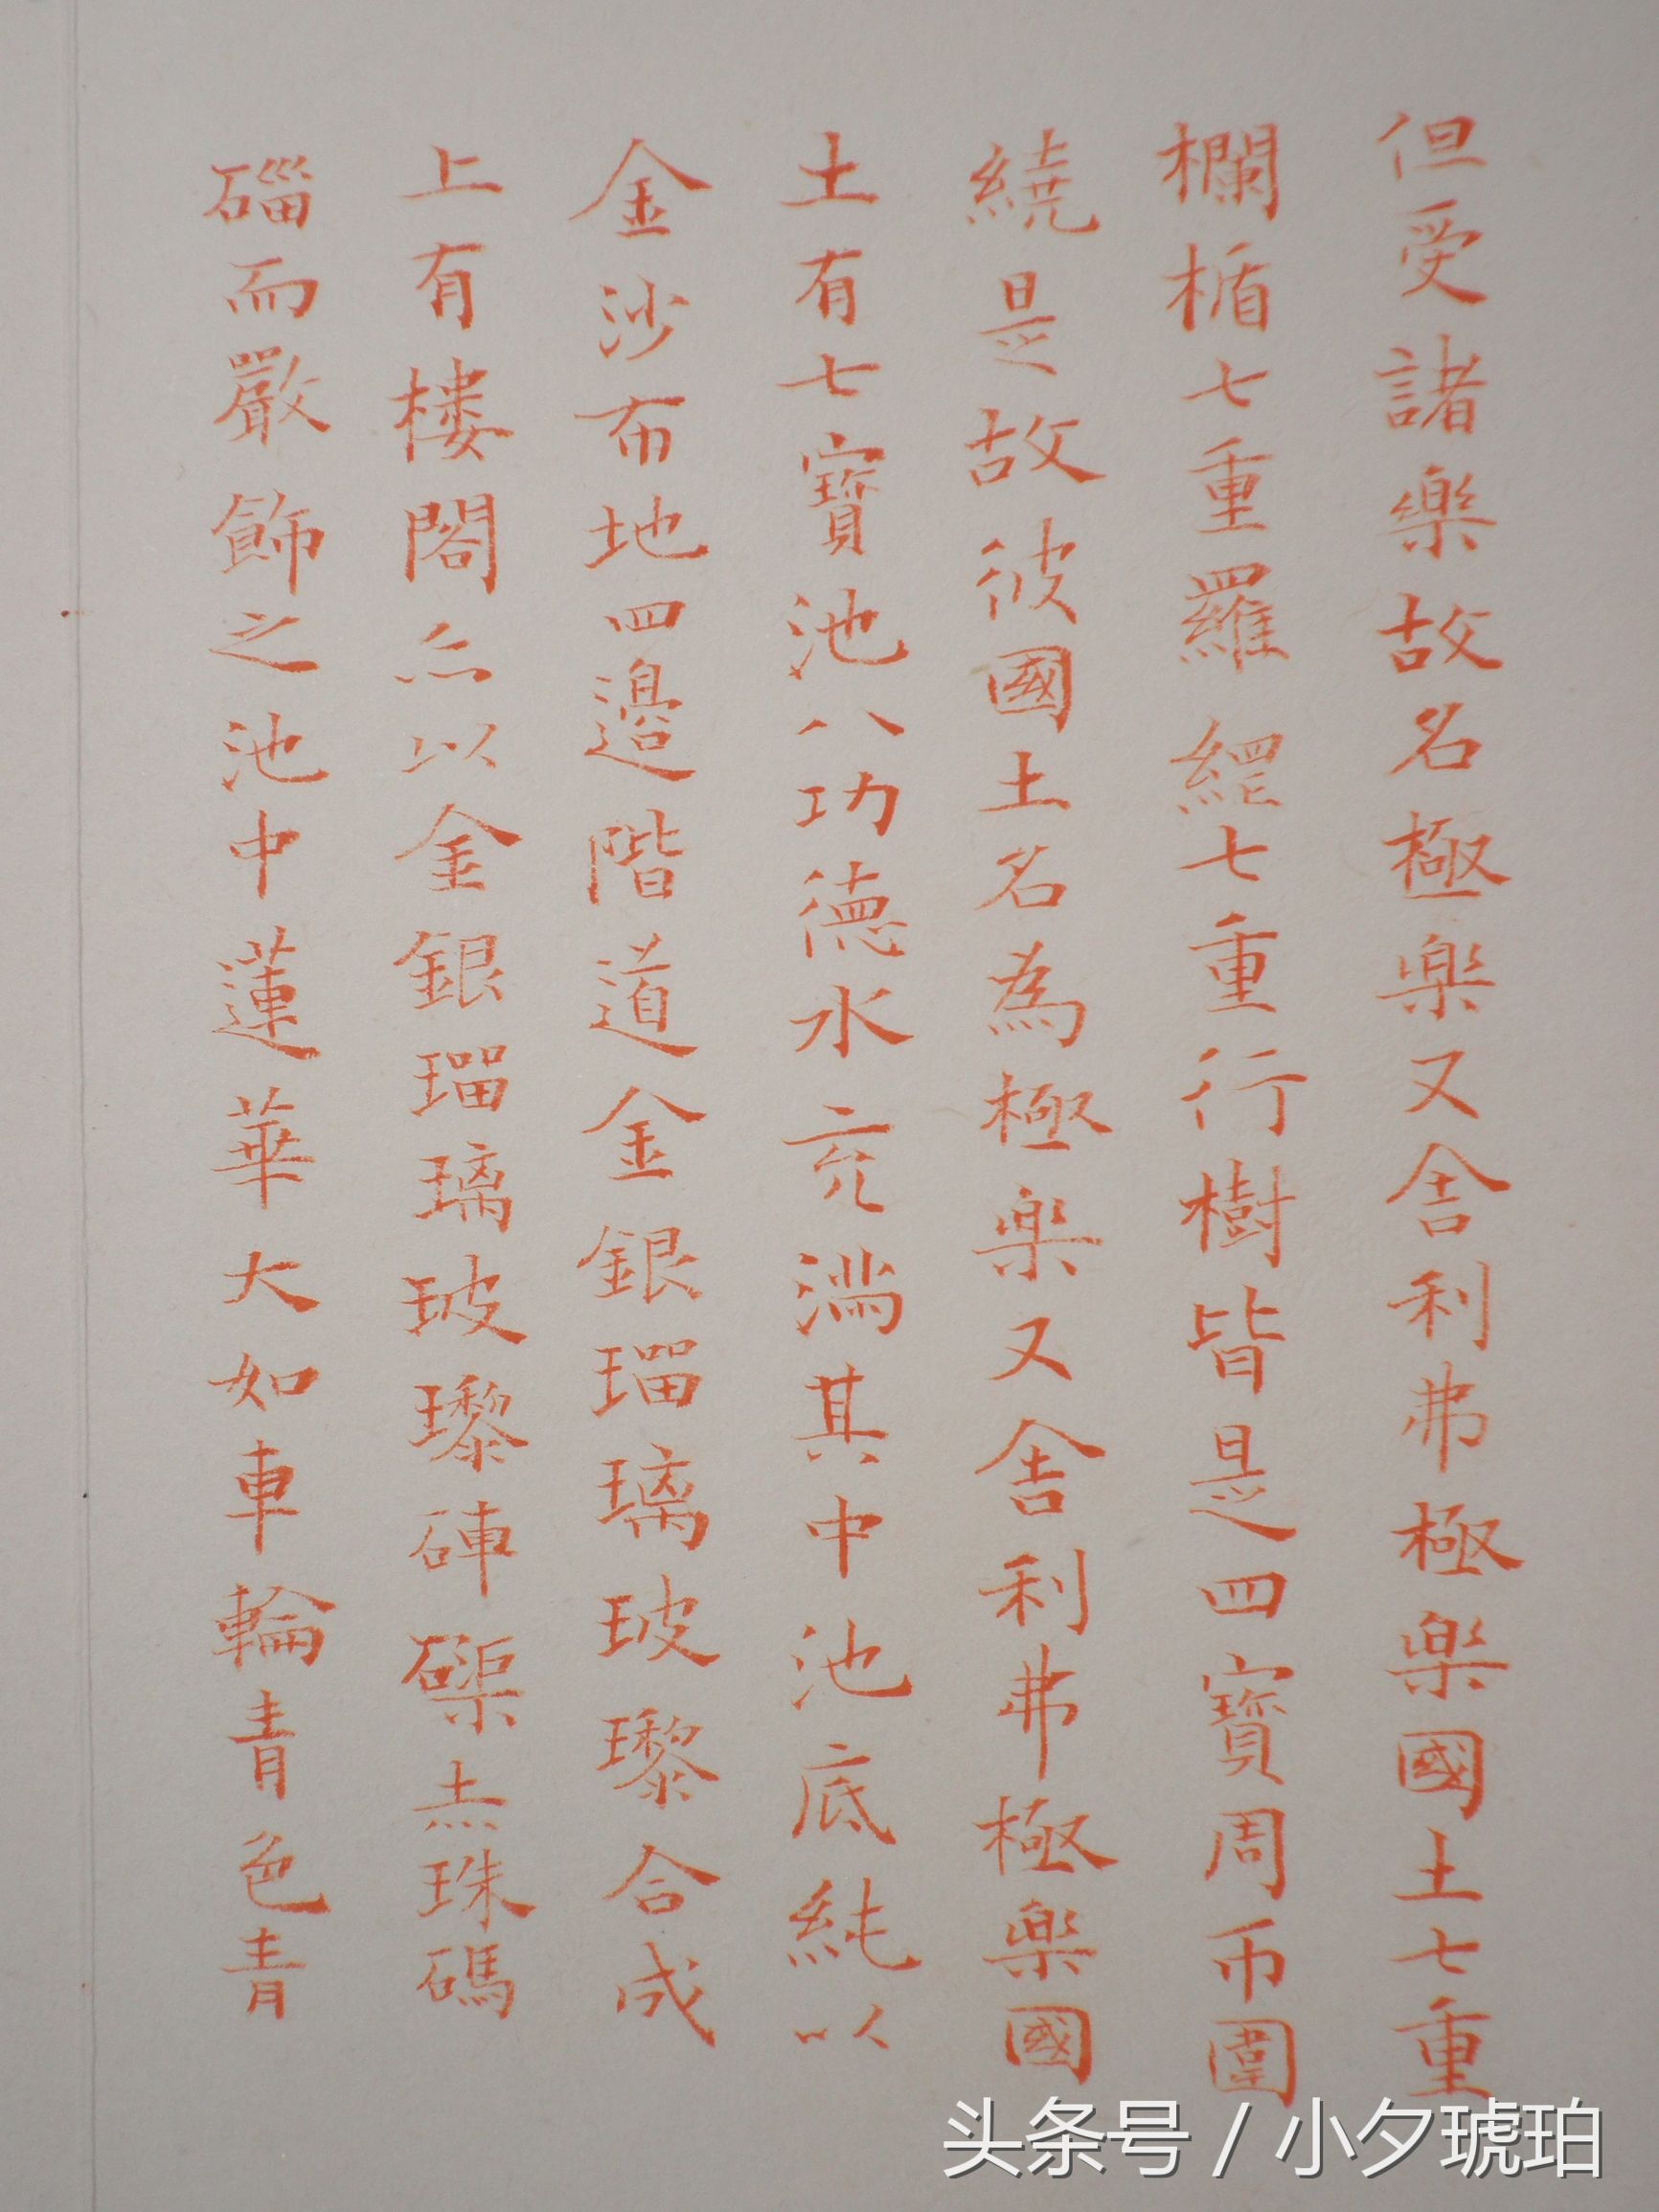 但受諸樂故名極樂又舍利弗極樂國土七重
欄楯七重羅網七重行樹皆是四寶周帀圍
繞是故彼國土名為極樂又舍利弗極樂國
土有七寶池八功德水充滿其中池底純以
金沙布地四邊階道金銀瑠璃玻瓈合成
上有楼閣亦以金銀瑠璃玻瓈硨磲赤珠碼
碯而嚴飾之池中蓮華大如車輪青色青
头条号 / 小夕琥珀